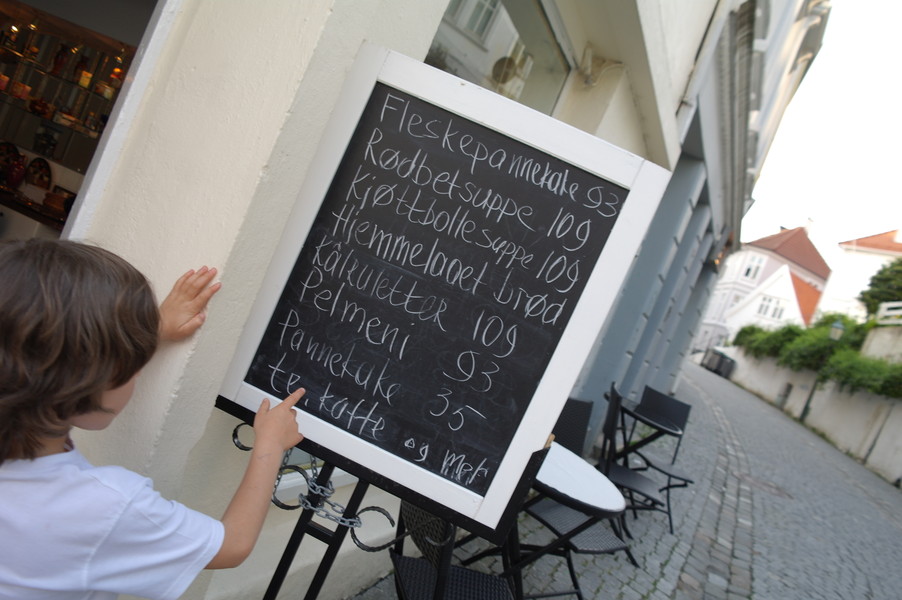 Fleskepannekake 93
Rødbetsuppe 109
Kjøttbollesuppe 109
Hjemmelaget brød
Kålruletter 109
Pelmeni 93
Pannekake 35
te, kaffe og mer